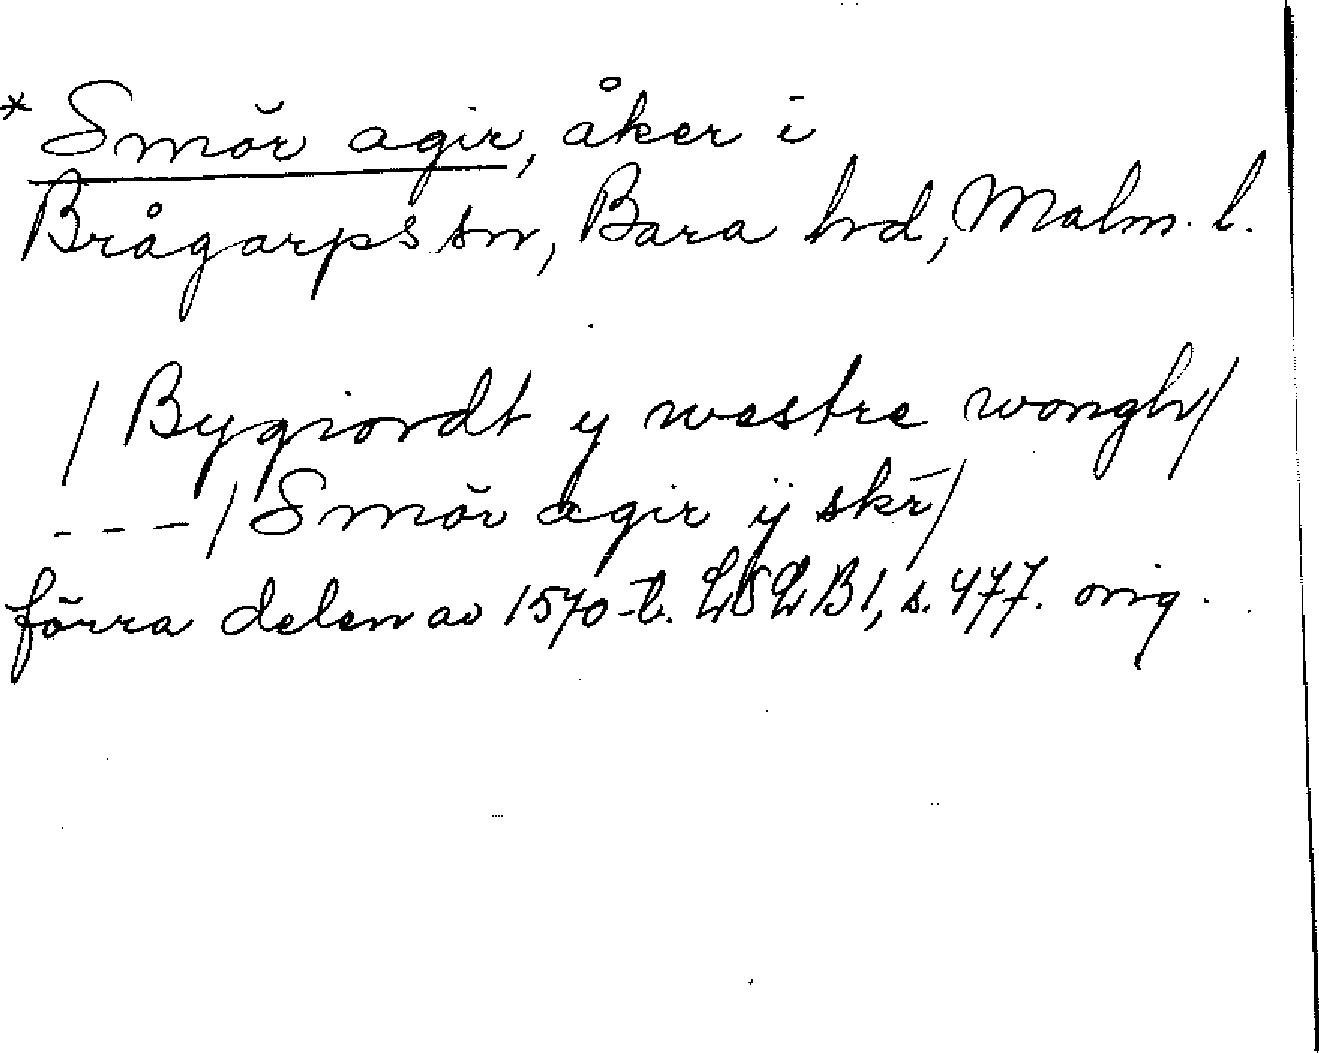 * Smör agir, åker i
Brågarps sn, Bara hd, Malm. l.
/ Bygiordt y westre wongh /
- - - / Smör agir ÿ skr̄ /
förra delen av 1570-t. LSLB1, s. 477. orig.